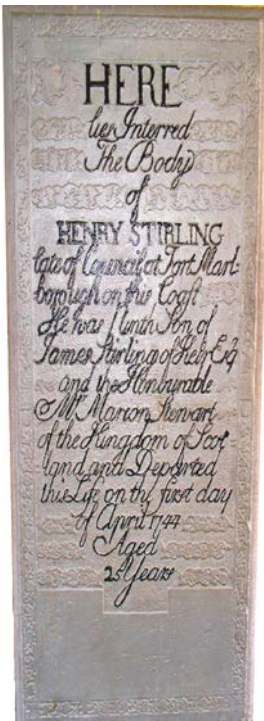 HERE
lies Interred
The Body
of
HENRY STIRLING
late of Council at Fort Marl-
borough on this Coast
He was Ninth Son of
James Stirling of Keir Esq
and the Honourable
Mrs Marion Stewart
of the Kingdom of Scot
land and Departed
this Life on the first day
of April 1744
Aged
25 Years